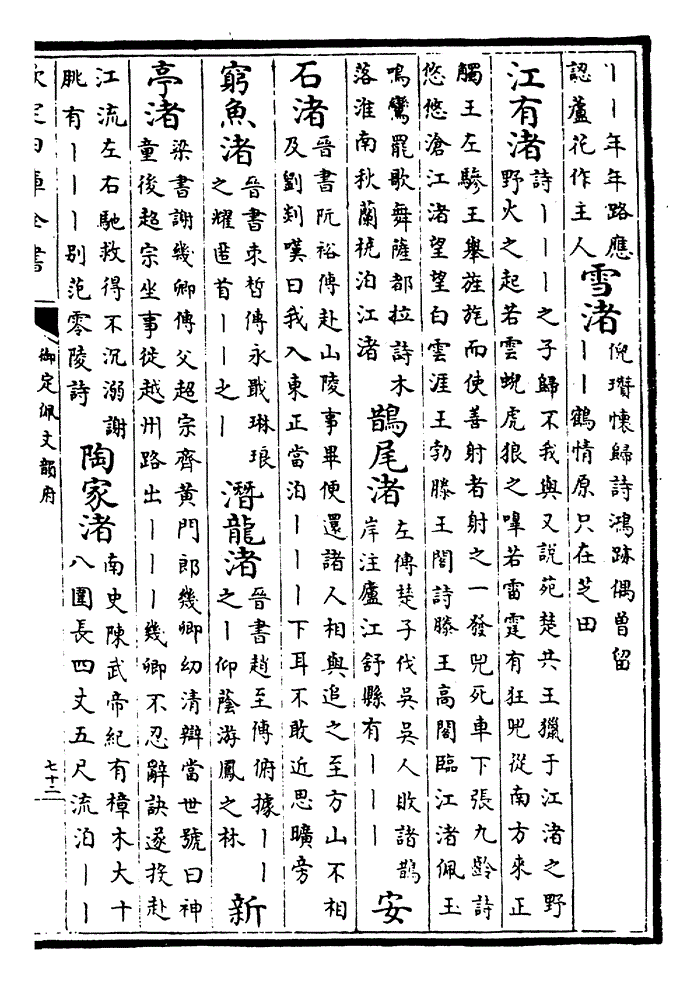 丨丨年年路應
認蘆花作主人
雪渚
倪瓚懷歸詩鴻跡偶曾留
丨丨鶴情原只在芝田
江有渚
詩丨丨丨之子歸不我與又說苑楚共王獵于江渚之野
野火之起若雲蜺虎狼之嘷若雷霆有狂兕從南方來正
觸王左驂王舉旌旄而使善射者射之一發兕死車下張九齡詩
悠悠滄江渚望望白雲涯王勃滕王閣詩滕王高閣臨江渚佩玉
鳴鸞罷歌舞薩都拉詩木
落淮南秋蘭橈泊江渚
鵲尾渚
左傳楚子伐吳吳人敗諸鵲
岸注廬江舒縣有丨丨丨
安
石渚
晉書阮裕傳赴山陵事畢便還諸人相與追之至方山不相
及劉惔嘆曰我入東正當泊丨丨丨下耳不敢近思曠旁
窮魚渚
晉書束晳傳永戢琳琅
之耀匿首丨丨之丨
潛龍渚
晉書趙至傳俯據丨丨
之丨仰蔭游鳳之林
新
亭渚
梁書謝幾卿傳父超宗齊黃門郎幾卿幼清辯當世號曰神
童後超宗坐事徙越州路出丨丨丨幾卿不忍辭訣遂投赴
江流左右馳救得不沉溺謝
朓有丨丨丨別范零陵詩
陶家渚
南史陳武帝紀有樟木大十
八圍長四丈五尺流泊丨丨
欽定四庫全書
御定佩文韻府
七十二